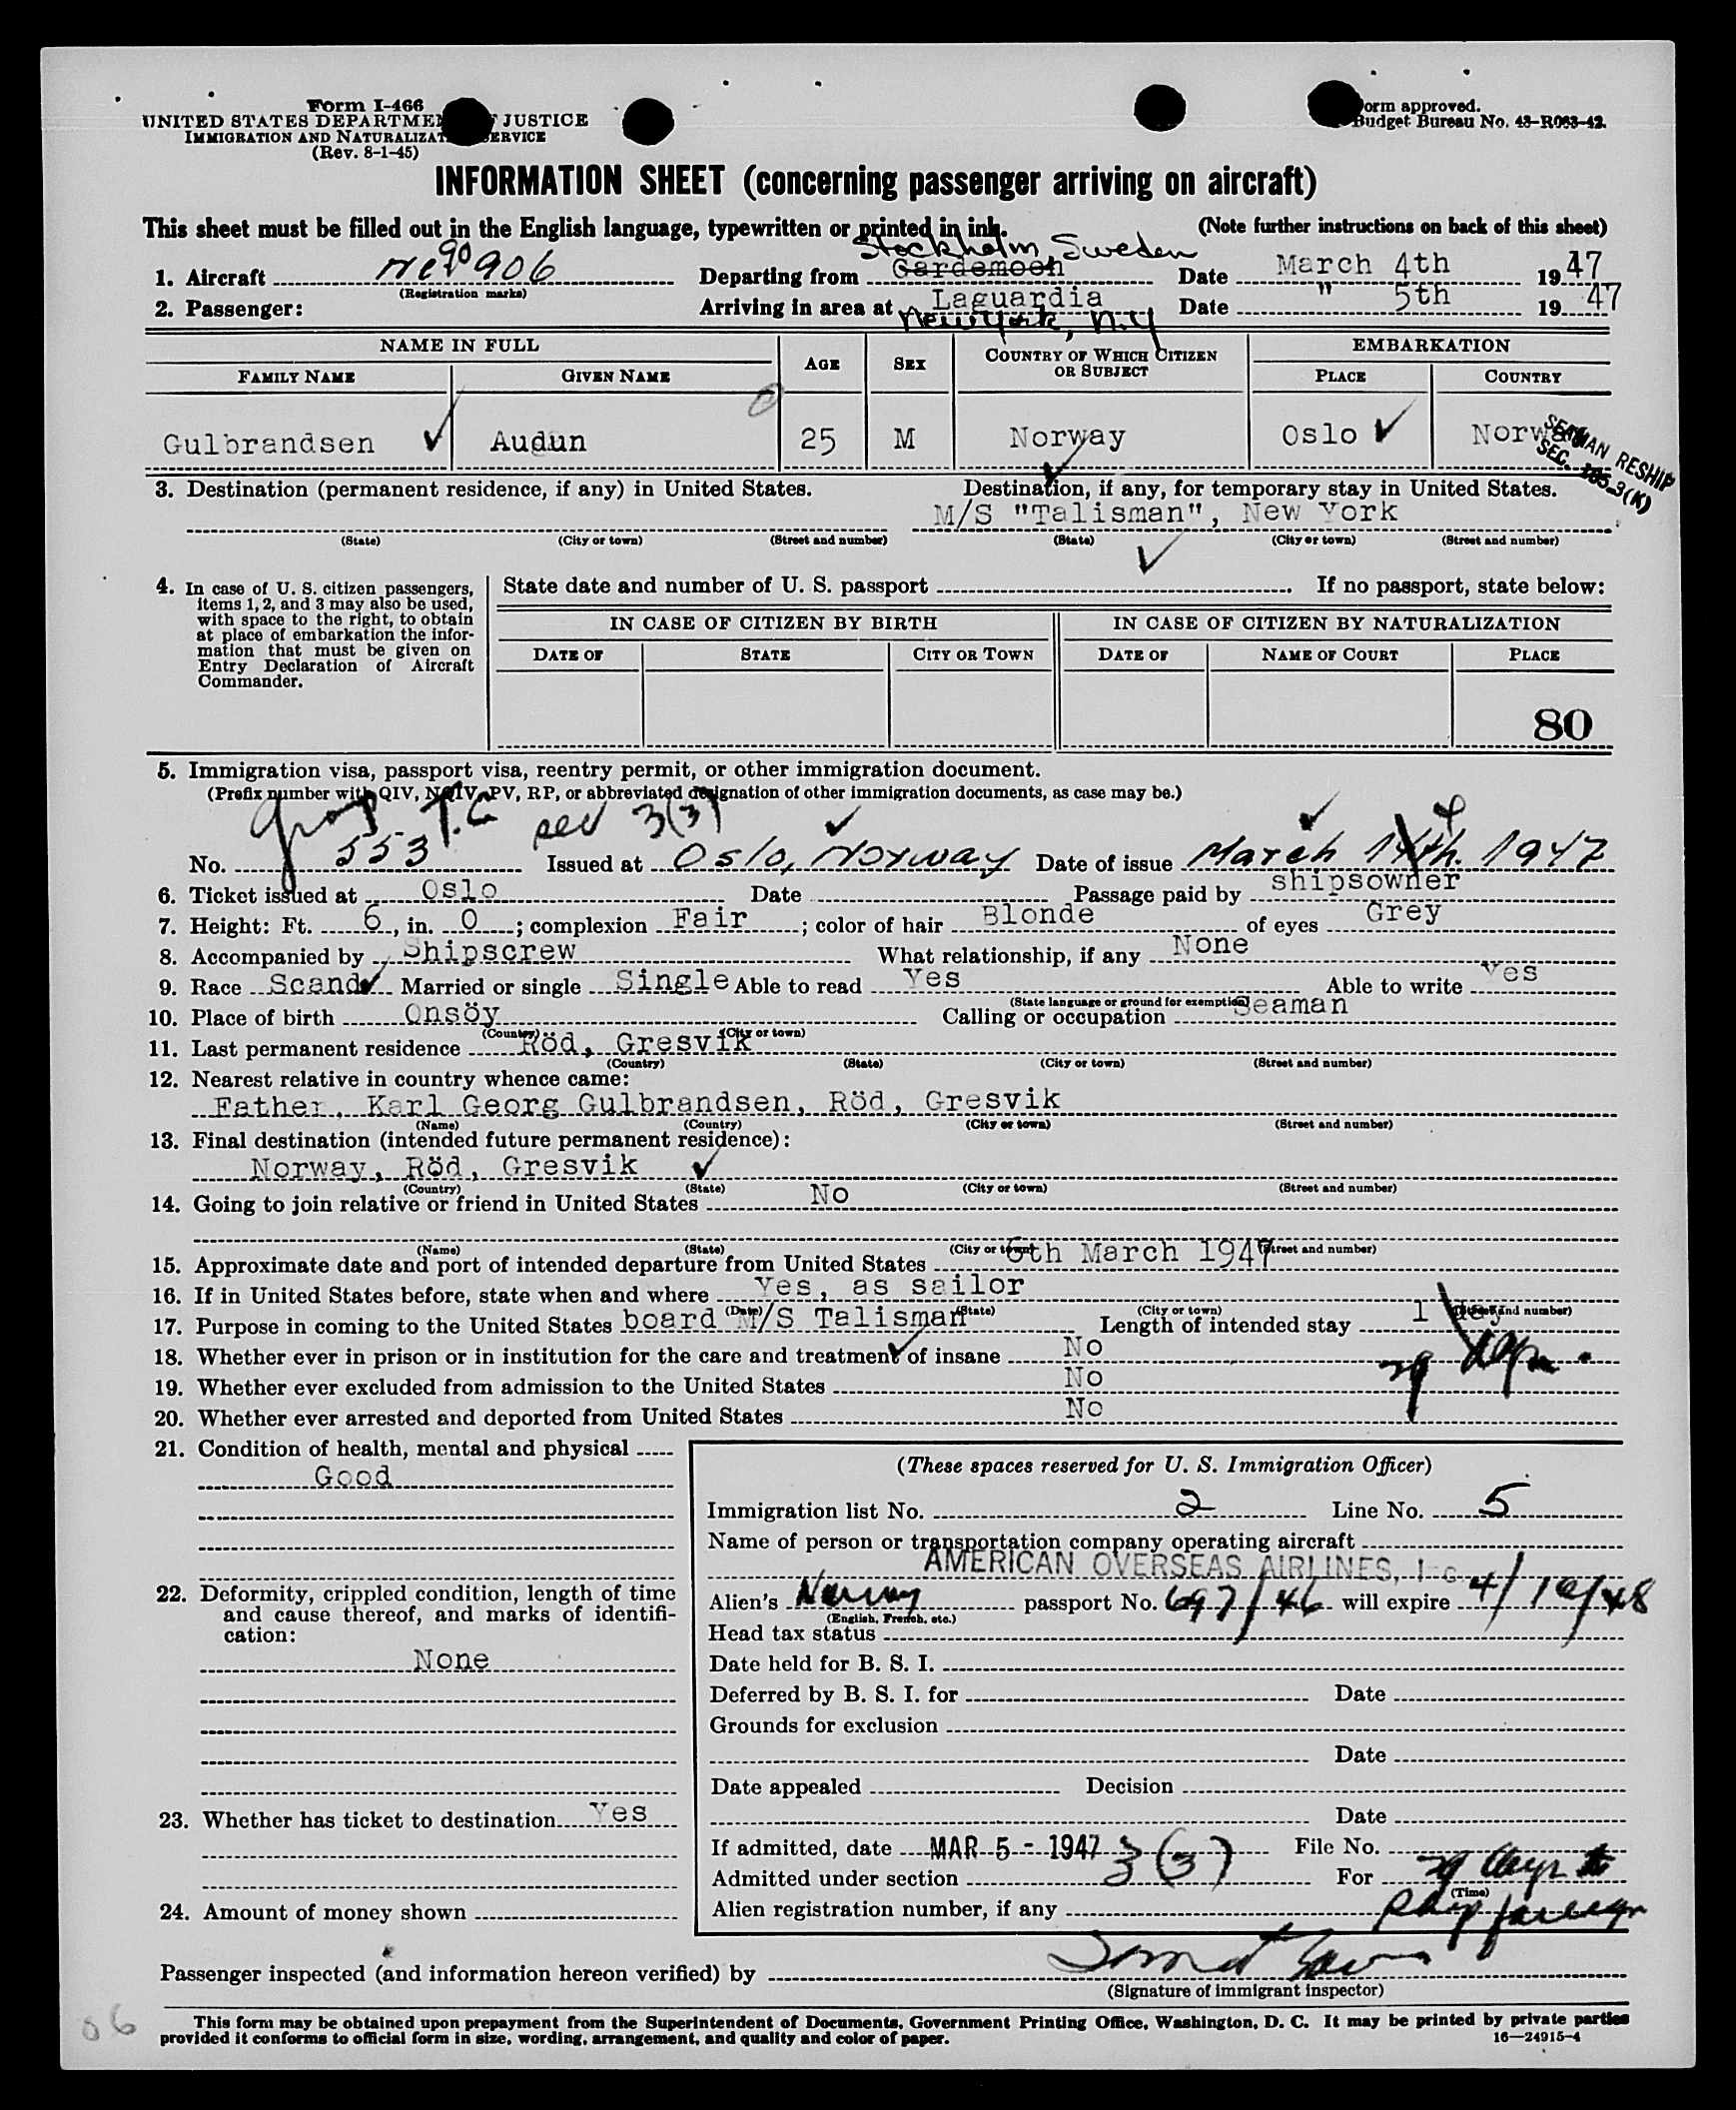 Form I-466
UNITED STATES DEPARTMENT OF JUSTICE
IMMIGRATION AND NATURALIZATION SERVICE
(Rev. 8-1-45)
Form approved.
Budget Bureau No. 43-R063-42.
INFORMATION SHEET (concerning passenger arriving on aircraft)
This sheet must be filled out in the English language, typewritten or printed in ink. (Note further instructions on back of this sheet)
Stockholm, Sweden
1. Aircraft 90906 Departing from Gardemoen Date March 4th 1947
(Registration marks)
2. Passenger: Arriving in area at Laguardia Date " 5th 1947
New York, N.Y
NAME IN FULL AGE SEX COUNTRY OF WHICH CITIZEN OR SUBJECT EMBARKATION
FAMILY NAME GIVEN NAME PLACE COUNTRY
Gulbrandsen Audun 25 M Norway Oslo Norway
SEAMAN RESHIP
SEC. 3(K)
3. Destination (permanent residence, if any) in United States. Destination, if any, for temporary stay in United States.
M/S "Talisman", New York
(State) (City or town) (Street and number) (State) (City or town) (Street and number)
4. In case of U. S. citizen passengers, items 1, 2, and 3 may also be used, with space to the right, to obtain at place of embarkation the information that must be given on Entry Declaration of Aircraft Commander.
State date and number of U. S. passport . If no passport, state below:
IN CASE OF CITIZEN BY BIRTH IN CASE OF CITIZEN BY NATURALIZATION
DATE OF STATE CITY OR TOWN DATE OF NAME OF COURT PLACE
80
5. Immigration visa, passport visa, reentry permit, or other immigration document.
(Prefix number with QIV, NQIV, PV, RP, or abbreviated designation of other immigration documents, as case may be.)
3(3)
No. 553 Issued at Oslo, Norway Date of issue March 4th. 1947
6. Ticket issued at Oslo Date Passage paid by shipsowner
7. Height: Ft. 6, in. 0; complexion Fair; color of hair Blonde of eyes Grey
8. Accompanied by Shipscrew What relationship, if any None
9. Race Scand. Married or single Single Able to read Yes Able to write Yes
(State language or ground for exemption)
10. Place of birth Onsöy Calling or occupation Seaman
(Country) (City or town)
11. Last permanent residence Röd, Gresvik
(Country) (State) (City or town) (Street and number)
12. Nearest relative in country whence came:
Father, Karl Georg Gulbrandsen, Röd, Gresvik
(Name) (Country) (City or town) (Street and number)
13. Final destination (intended future permanent residence):
Norway, Röd, Gresvik
(Country) (State) (City or town) (Street and number)
14. Going to join relative or friend in United States No
(Name) (State) (City or town) (Street and number)
15. Approximate date and port of intended departure from United States 6th March 1947
16. If in United States before, state when and where Yes, as sailor
(Date) (State) (City or town) (Street and number)
17. Purpose in coming to the United States board M/S Talisman Length of intended stay 1 day
29 days.
18. Whether ever in prison or in institution for the care and treatment of insane No
19. Whether ever excluded from admission to the United States No
20. Whether ever arrested and deported from United States No
21. Condition of health, mental and physical
Good
22. Deformity, crippled condition, length of time and cause thereof, and marks of identification:
None
23. Whether has ticket to destination Yes
24. Amount of money shown
(These spaces reserved for U. S. Immigration Officer)
Immigration list No. 2 Line No. 5
Name of person or transportation company operating aircraft
AMERICAN OVERSEAS AIRLINES, Inc
Alien's Norway passport No. 697/46 will expire 4/10/48
(English, French, etc.)
Head tax status
Date held for B. S. I.
Deferred by B. S. I. for Date
Grounds for exclusion
Date
Date appealed Decision
Date
If admitted, date MAR 5 - 1947 File No.
Admitted under section 3(3) For 29 days to
(Time)
Alien registration number, if any ship foreign
Passenger inspected (and information hereon verified) by
(Signature of immigrant inspector)
06
This form may be obtained upon prepayment from the Superintendent of Documents, Government Printing Office, Washington, D. C. It may be printed by private parties
provided it conforms to official form in size, wording, arrangement, and quality and color of paper. 16—24915-4